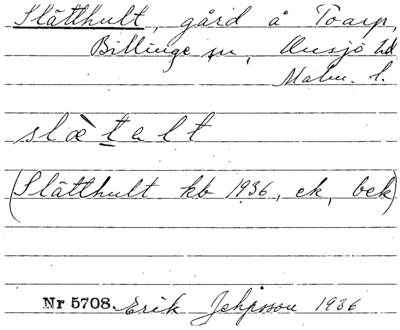 Slätthult, gård å Toarp,
Billinge sn, Onsjö hd
Malm. l.
slæ̀talt
(Slätthult kb 1936, ek, bek)
Nr 5708 Erik Jeppsson 1936